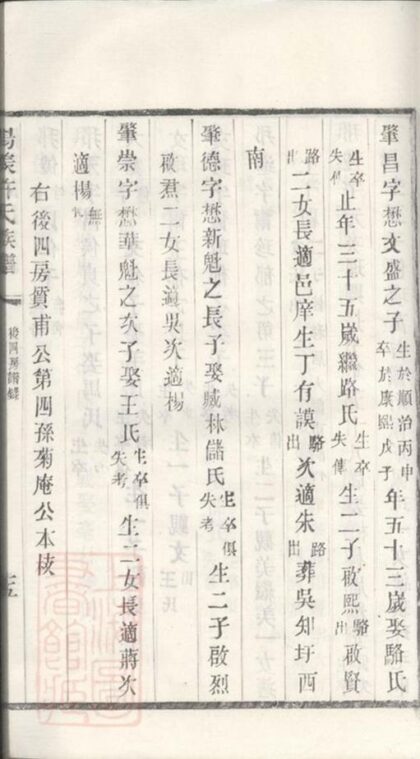 肇昌字懋文盛之子生於順治丙申卒於康熙戊子年五十三歲娶駱氏
生卒失傳止年三十五歲繼路氏生卒失傳生二子啟熙駱出啟賢
路出二女長適邑庠生丁有謨駱出次適朱路出葬吳知圩西
南
肇德字懋新魁之長子娶臧林儲氏生卒俱失考生二子啟烈
啟焄二女長適吳次適楊
肇崇字懋華魁之次子娶王氏生卒俱失考生二女長適蔣次
適楊無
右後四房質甫公第四孫菊庵公本枝
許氏族譜
後四房譜錄